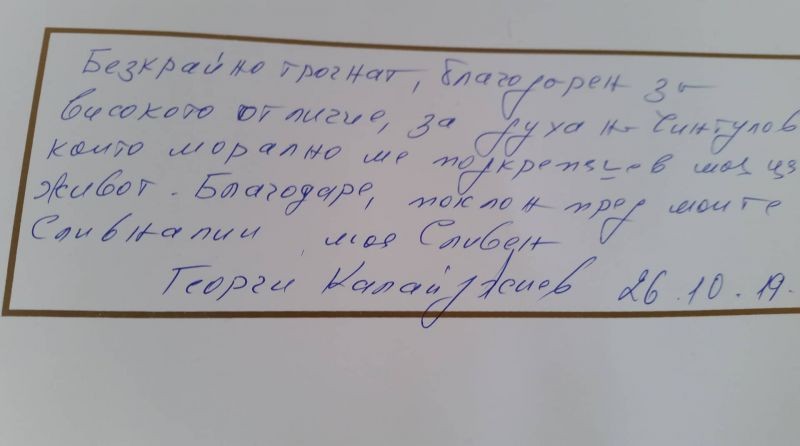 Безкрайно трогнат, благодарен за
високото отличие, за духа на Чинтулов
които морално ме подкрепяше в моя
живот. Благодаря, поклон пред моите
Сливналии моя Сливен
Георги Калайджиев 26.10.19.